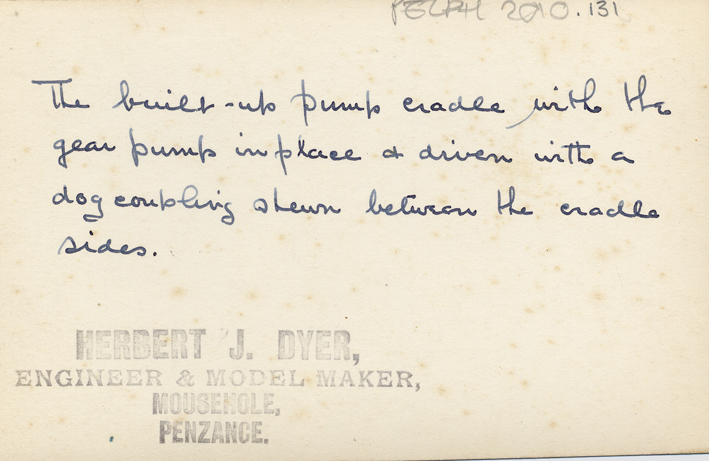 PELPH 2010.131
The built-up pump cradle, with the
gear pump in place & driven with a
dog coupling shewn between the cradle
sides.
HERBERT J. DYER,
ENGINEER & MODEL MAKER,
MOUSEHOLE,
PENZANCE.